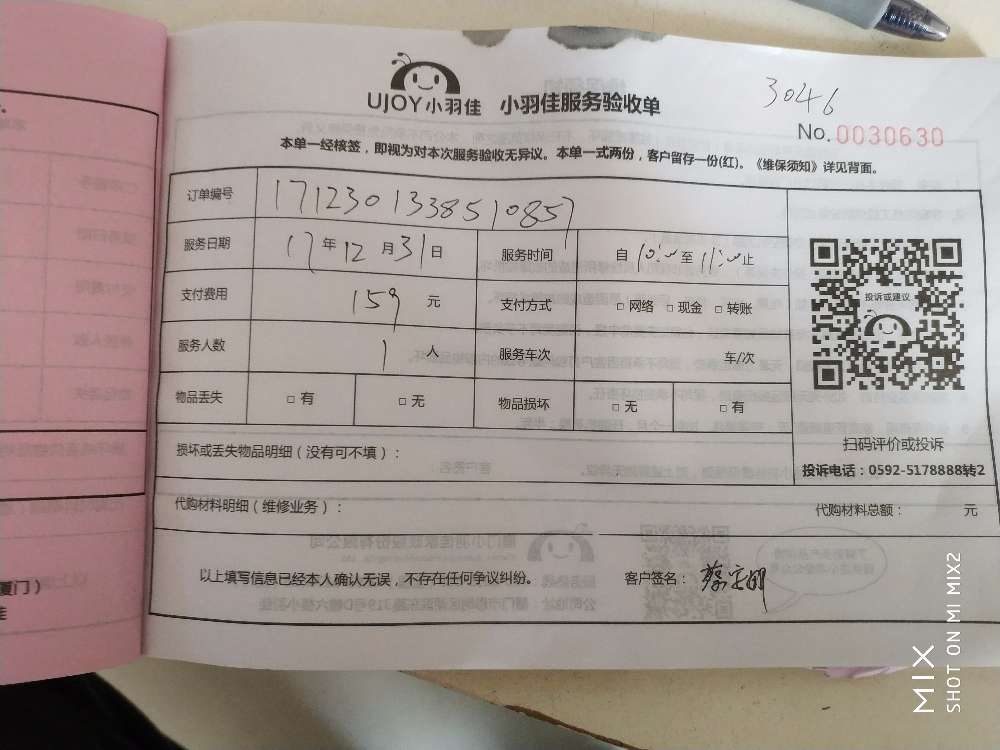 UJOY小羽佳 小羽佳服务验收单
3046
No.0030630
本单一经核签，即视为对本次服务验收无异议。本单一式两份，客户留存一份(红)。《维保须知》详见背面。
订单编号 1712301338510857
服务日期 17年12月31日 服务时间 自10:00至11:00止
支付费用 159元 支付方式 □网络 □现金 □转账
服务人数 1人 服务车次 车/次
物品丢失 □有 □无 物品损坏 □无 □有
投诉或建议
扫码评价或投诉
投诉电话：0592-5178888转2
损坏或丢失物品明细（没有可不填）：
代购材料明细（维修业务）： 代购材料总额： 元
以上填写信息已经本人确认无误，不存在任何争议纠纷。 客户签名：
厦门）
MIX
SHOT ON MI MIX2